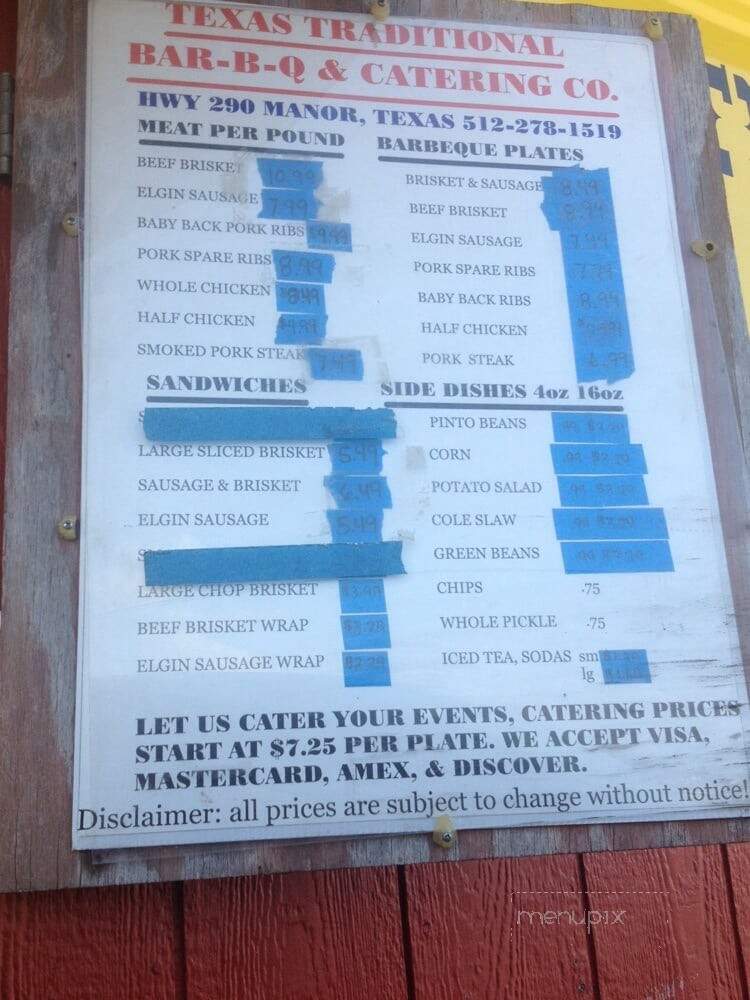 TEXAS TRADITIONAL
BAR-B-Q & CATERING CO.
HWY 290 MANOR, TEXAS 512-278-1519
MEAT PER POUND
BEEF BRISKET 10.99
ELGIN SAUSAGE 7.99
BABY BACK PORK RIBS $9.49
PORK SPARE RIBS 8.99
WHOLE CHICKEN $8.49
HALF CHICKEN $4.99
SMOKED PORK STEAK 7.49
BARBEQUE PLATES
BRISKET & SAUSAGE 8.49
BEEF BRISKET 8.94
ELGIN SAUSAGE 7.49
PORK SPARE RIBS
BABY BACK RIBS 8.94
HALF CHICKEN
PORK STEAK 6.99
SANDWICHES
LARGE SLICED BRISKET 5.49
SAUSAGE & BRISKET 6.49
ELGIN SAUSAGE 5.49
LARGE CHOP BRISKET
BEEF BRISKET WRAP
ELGIN SAUSAGE WRAP
SIDE DISHES 4oz 16oz
PINTO BEANS
CORN
POTATO SALAD
COLE SLAW
GREEN BEANS
CHIPS .75
WHOLE PICKLE .75
ICED TEA, SODAS sm
lg
LET US CATER YOUR EVENTS, CATERING PRICES
START AT $7.25 PER PLATE. WE ACCEPT VISA,
MASTERCARD, AMEX, & DISCOVER.
Disclaimer: all prices are subject to change without notice!
menupix